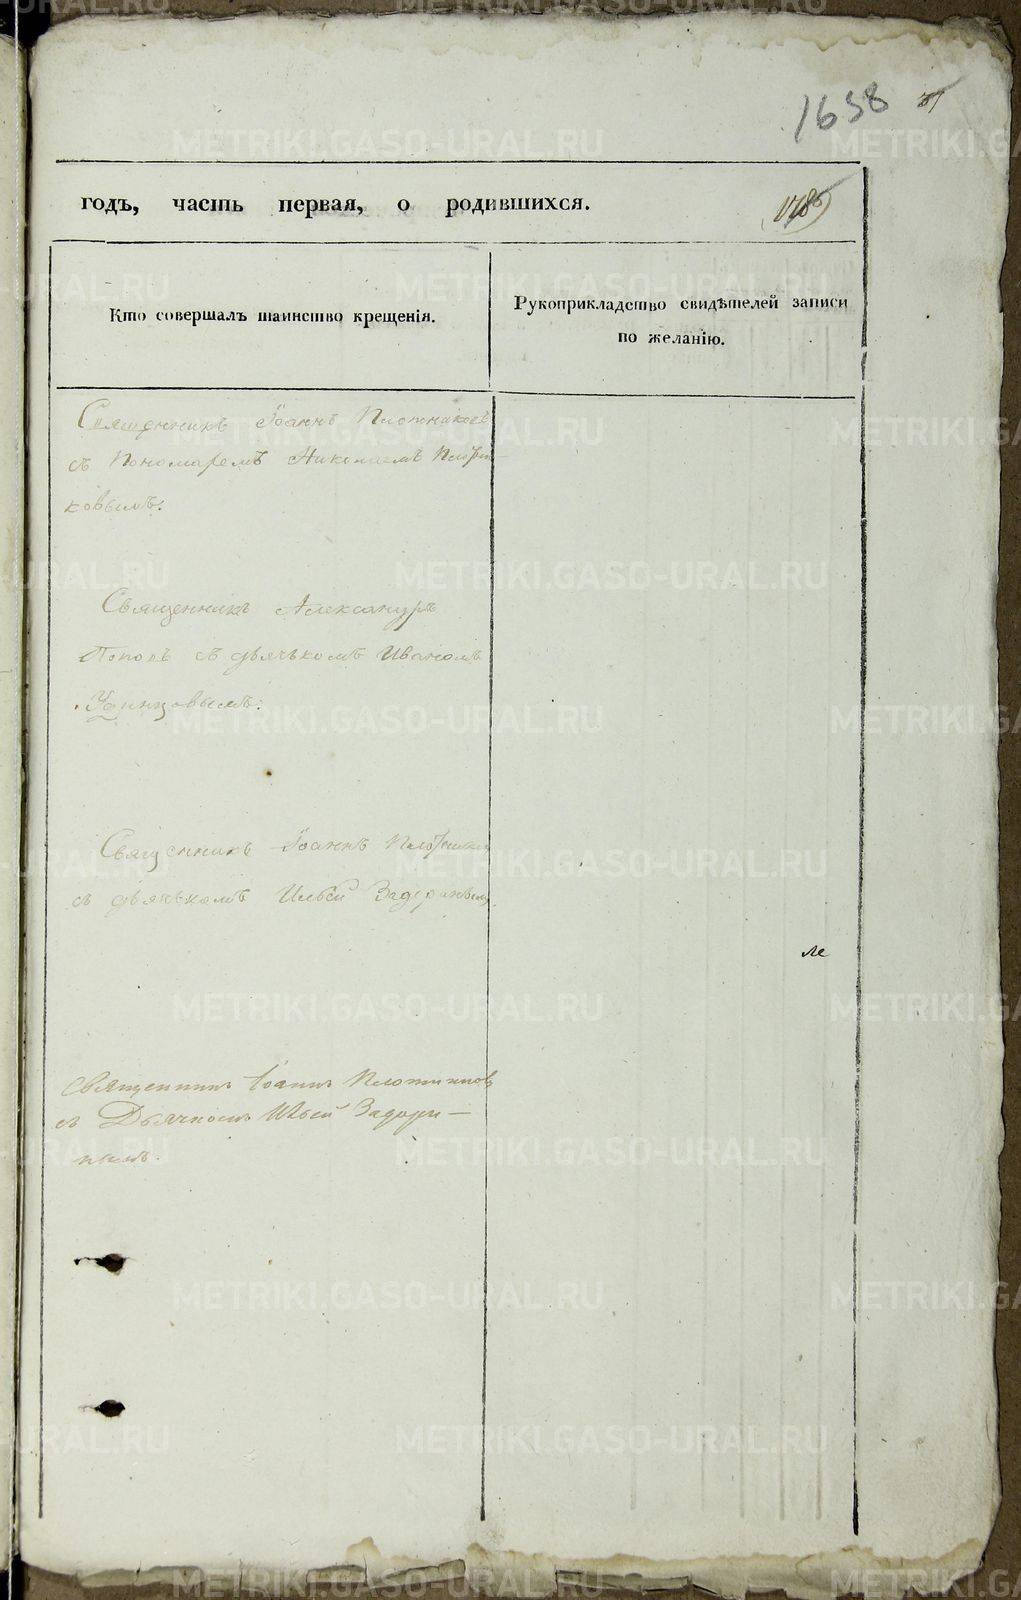 1658
годъ, часть первая, о родившихся.
Кто совершалъ таинство крещенія.
Рукоприкладство свидѣтелей записи
по желанію.
Священникъ Іоаннъ Плотниковъ
съ Пономаремъ Николаемъ Плотни-
ковымъ:
Священникъ Александръ
Поповъ съ дьячькомъ Иваномъ
Удинцовымъ:
Священникъ Іоаннъ
съ дьячькомъ Ильей
Священникъ Іоаннъ Плотниковъ
съ Дьячкомъ Ильей Задори-
нымъ.
ле
METRIKI.GASO-URAL.RU